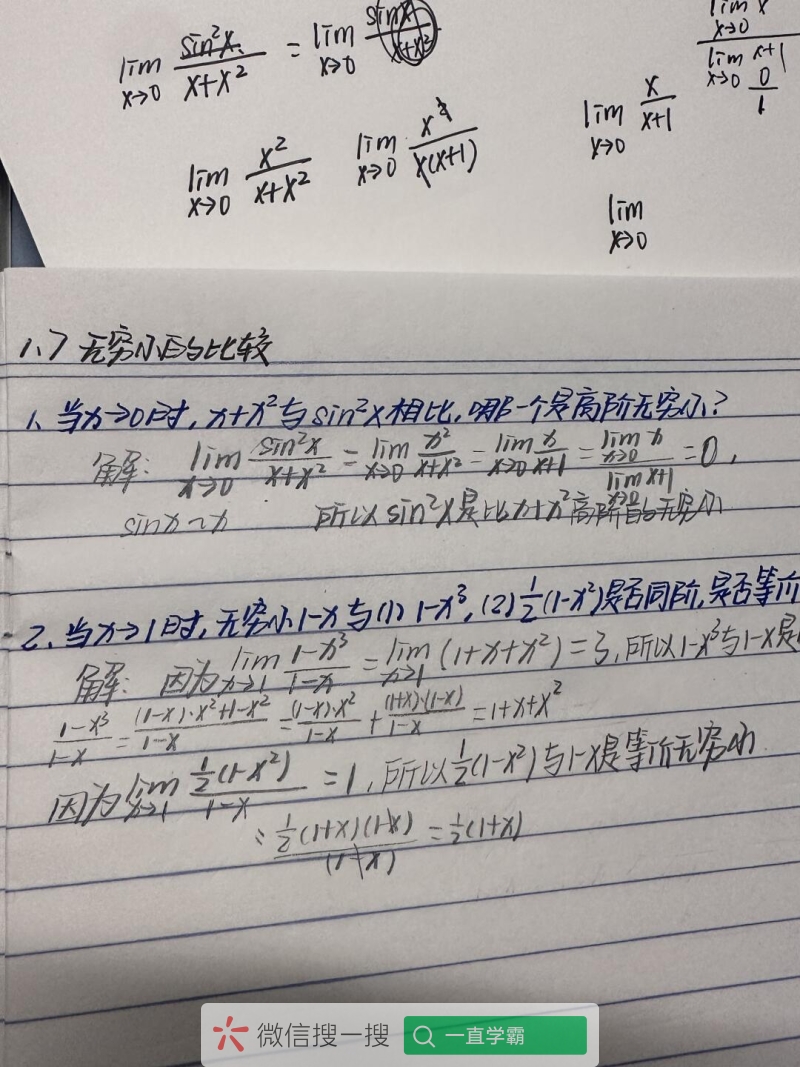 lim x→0 sin²x / x+x² = lim x→0 sinx / x+x²
lim x→0 x
lim x→0 x+1
0
1
lim x→0 x² / x+x² lim x→0 x² / x(x+1) lim x→0 x / x+1
lim x→0
1.7 无穷小的比较
1、当x→0时, x+x²与sin²x相比,哪一个是高阶无穷小?
解: lim x→0 sin²x / x+x² = lim x→0 x² / x+x² = lim x→0 x / x+1 = lim x→0 x / lim x→0 x+1 = 0,
sinx~x 所以sin²x是比x+x²高阶的无穷小
2、当x→1时,无穷小1-x与(1) 1-x³, (2) ½(1-x²)是否同阶,是否等价
解: 因为lim x→1 1-x³ / 1-x = lim x→1 (1+x+x²) = 3, 所以1-x³与1-x是
1-x³ / 1-x = (1-x)·x²+1-x² / 1-x = (1-x)·x² / 1-x + (1+x)·(1-x) / 1-x = 1+x+x²
因为lim x→1 ½(1-x²) / 1-x = 1, 所以½(1-x²)与1-x是等价无穷小
: ½(1+x)(1-x) / (1-x) = ½(1+x)
微信搜一搜 一直学霸